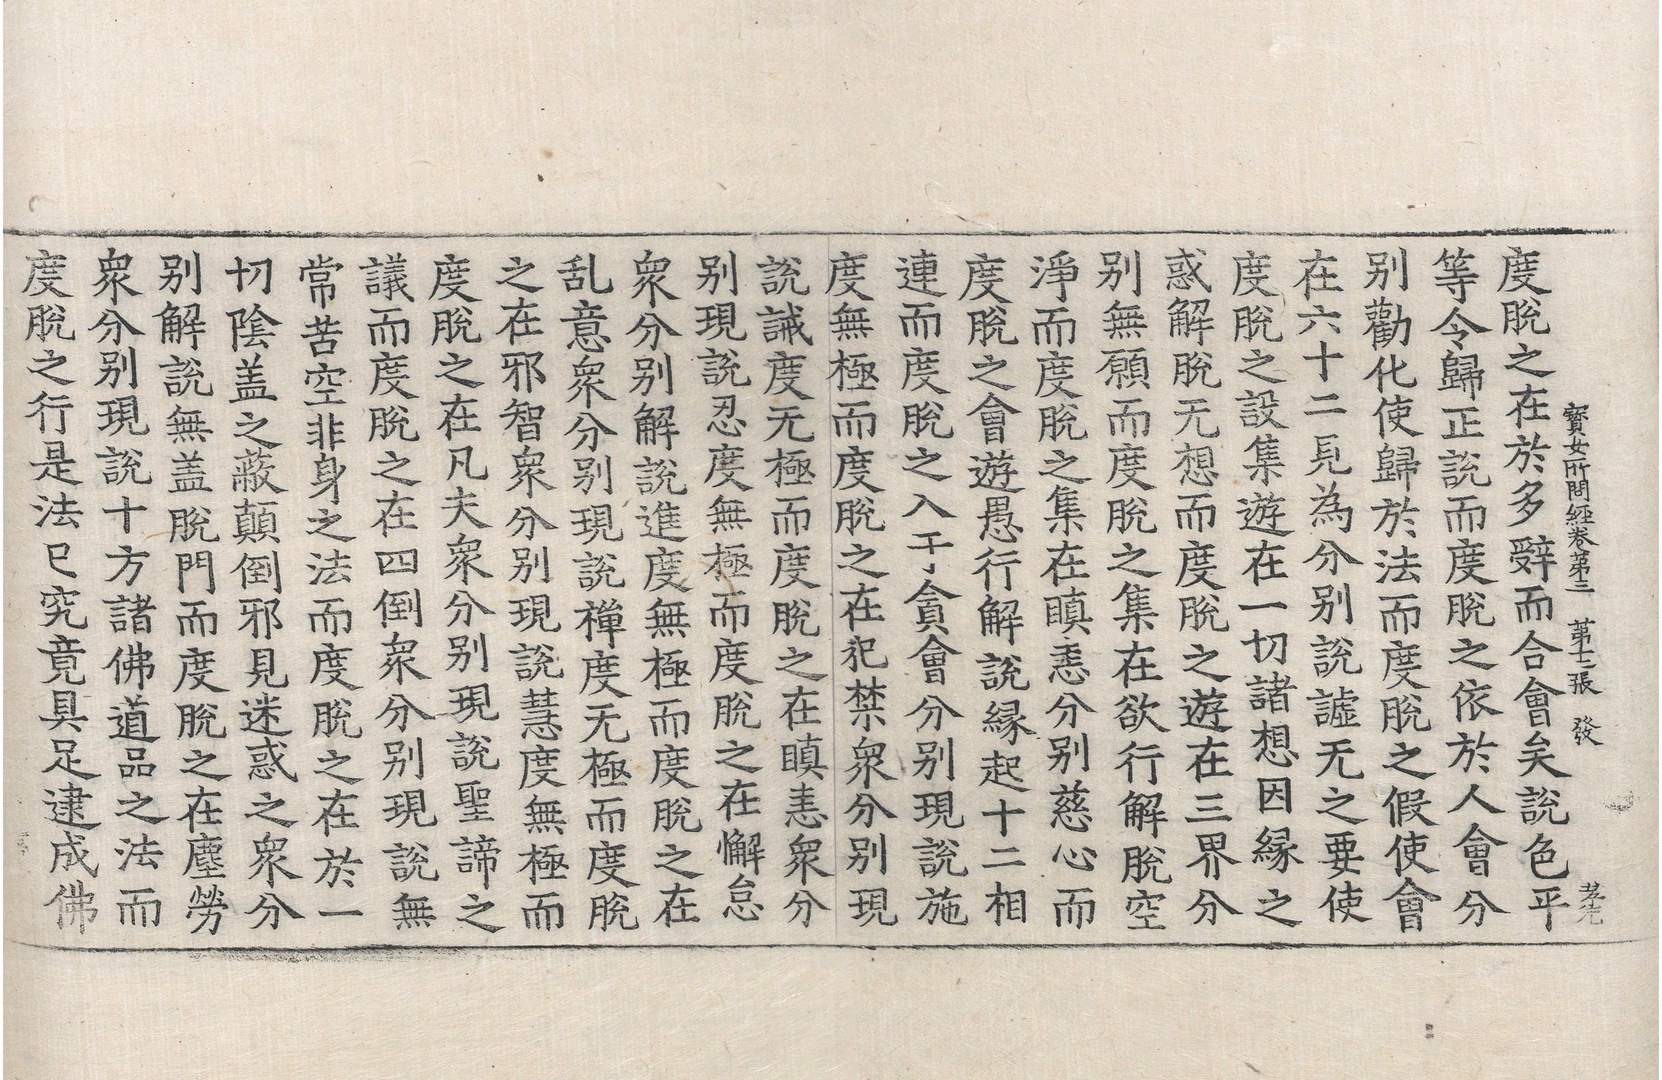 寳女所問經卷第三 第十二張 發
度脫之在於多辤而合會矣說色平
等令歸正說而度脫之依於人會分
别勸化使歸於法而度脫之假使會
在六十二見為分别說譃无之要使
度脫之設集遊在一切諸想因緣之
惑解脫无想而度脫之遊在三界分
别無願而度脫之集在欲行解脫空
淨而度脫之集在瞋恚分别慈心而
度脫之會遊愚行解說緣起十二相
連而度脫之入于貪會分别現說施
度無極而度脫之在犯禁衆分别現
說誡度无極而度脫之在瞋恚衆分
别現說忍度無極而度脫之在懈怠
衆分别解說進度無極而度脫之在
乱意衆分别現說禪度无極而度脫
之在邪智衆分别現說慧度無極而
度脫之在凡夫衆分别現說聖諦之
議而度脫之在四倒衆分别現說無
常苦空非身之法而度脫之在於一
切陰盖之蔽顛倒邪見迷惑之衆分
别解說無盖脫門而度脫之在塵勞
衆分别現說十方諸佛道品之法而
度脫之行是法已究竟具足逮成佛